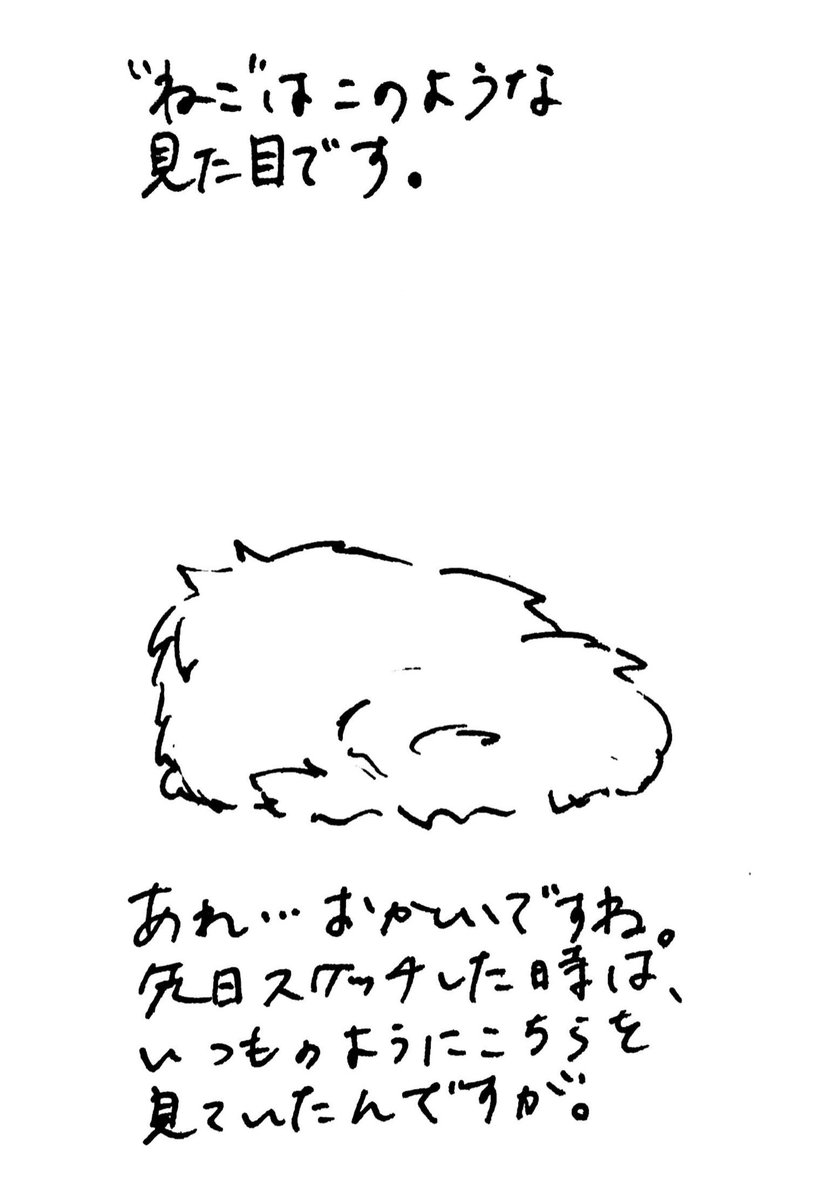 "ねこ"はこのような
見た目です。
あれ…おかしいですね。
先日スケッチした時は、
いつものようにこちらを
見ていたんですが。